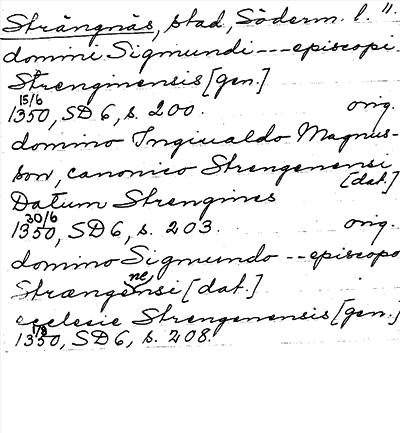 Strängnäs, stad, Söderm. l. 11.
domini Sigmundi --- episcopi
Strenginensis [gen.]
15/6
1350, SD 6, s. 200. orig.
domino Ingiualdo Magnus-
son, canonico Strengenensi
[dat.]
Datum Strengines
30/6
1350, SD 6, s. 203. orig.
domino Sigmundo -- episcopo
Strængenensi [dat.]
ecclesie Strengenensis [gen.]
1/8
1350, SD 6, s. 208.